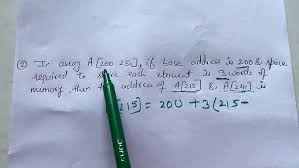 ② In array A[200:250], if base address is 200 & space
required to store each element is 3 words of
memory then the address of A[215] & A[241] is
[215] = 200 + 3(215-